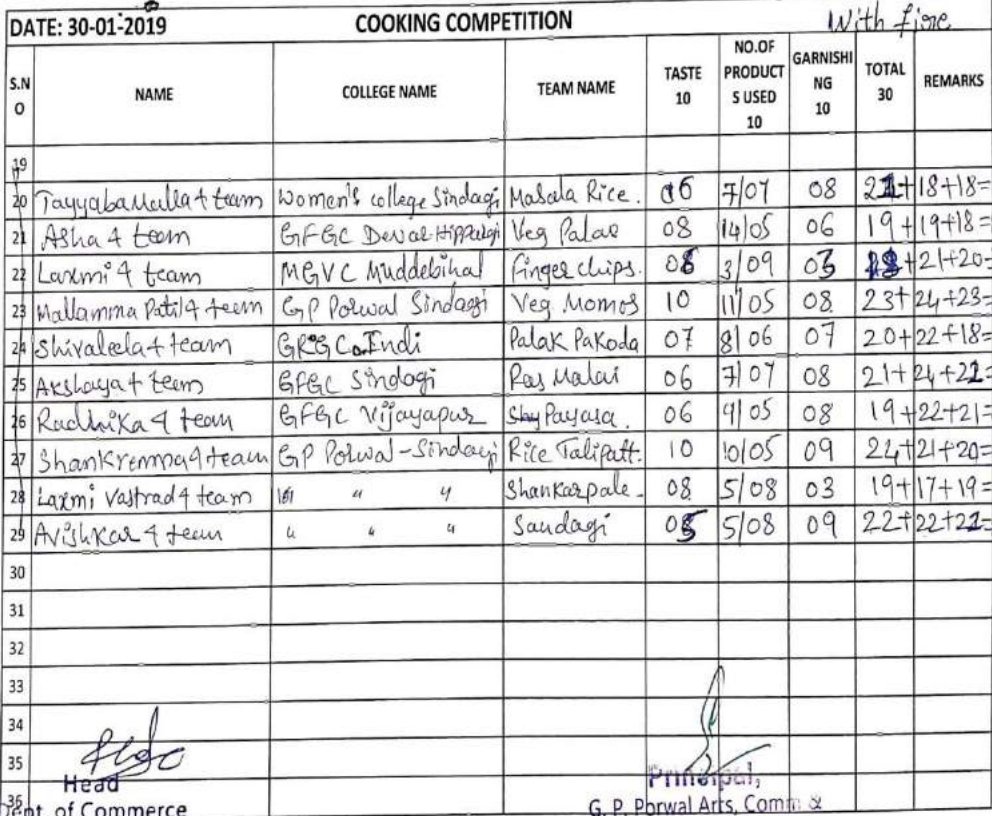 DATE: 30-01-2019 COOKING COMPETITION With fire
S.N O NAME COLLEGE NAME TEAM NAME TASTE 10 NO.OF PRODUCT S USED 10 GARNISHI NG 10 TOTAL 30 REMARKS
19
20 Tayyaba Mulla & team Women's college Sindagi Masala Rice. 06 7/07 08 21+18+18=
21 Asha & team GFGC Devar Hippargi Veg Palav 08 14/05 06 19+19+18=
22 Laxmi & team MGVC Muddebihal finger chips. 3/09 03 +21+20=
23 Mallamma Patil & team GP Porwal Sindagi Veg. Momos 10 11/05 08 23+24+23=
24 Shivaleela & team Indi Palak Pakoda 07 8/06 07 20+22+18=
25 Akshaya & team GFGC Sindagi Ras Malai 06 7/07 08 21+24+22=
26 Radhika & team GFGC Vijayapur Payasa. 06 9/05 08 19+22+21=
27 Shankremma & team GP Porwal-Sindagi Rice Talipatt. 10 10/05 09 24+21+20=
28 Laxmi Vastrad & team " " Shankarpale. 08 5/08 03 19+17+19=
29 Avishkar & team " " " Sandagi 05 5/08 09 22+22+22=
30
31
32
33
34
35
Head Principal,
36
Dept. of Commerce G. P. Porwal Arts, Comm &